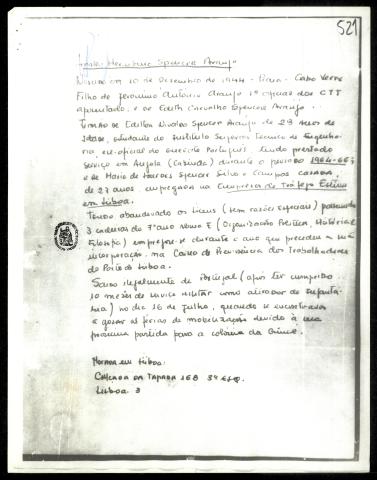 521
Herculano Spencer Araujo
Nascido em 10 de Dezembro de 1944 - Praia - Cabo Verde
Filho de Jeronimo António Araujo 1º oficial dos CTT
aposentado, e de Edith Carvalho Spencer Araujo.
Irmão de Edilson Nivaldo Spencer Araujo de 29 anos de
idade, estudante do Instituto Superior Tecnico de Engenharia
ex-oficial do exército Português, tendo prestado
serviço em Angola durante o periodo 1964-66
e de Maria de Lourdes Spencer Silva e Campos casada,
de 27 anos empregada na Companhia de Tráfego
em Lisboa.
Tendo abandonado os Liceus (sem razões especiais)
3 cadeiras do 7º ano (Organização Politica, História e
Filosofia) durante o ano que precedeu a
incorporação na Caixa de Previdência dos Trabalhadores
do Porto de Lisboa.
Saiu ilegalmente de Portugal (após ter cumprido
10 meses de serviço militar como atirador de Infanta-
ria) no dia 16 de Julho, quando se encontrava
a gozar as férias de mobilização devido à sua
proxima partida para a colónia da Guiné.
Morada em Lisboa:
Calçada da Tapada 168 3º Esq.
Lisboa 3